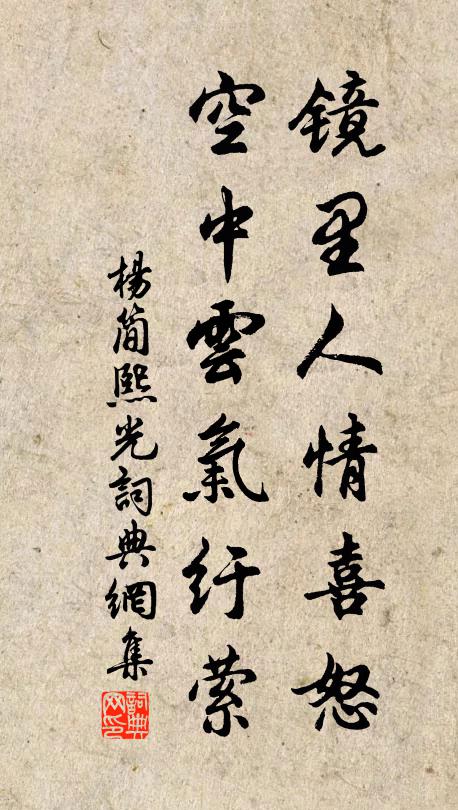 镜里人情喜怒
空中雲氣紆萦
楊简熙光詞典網集
詞典网印